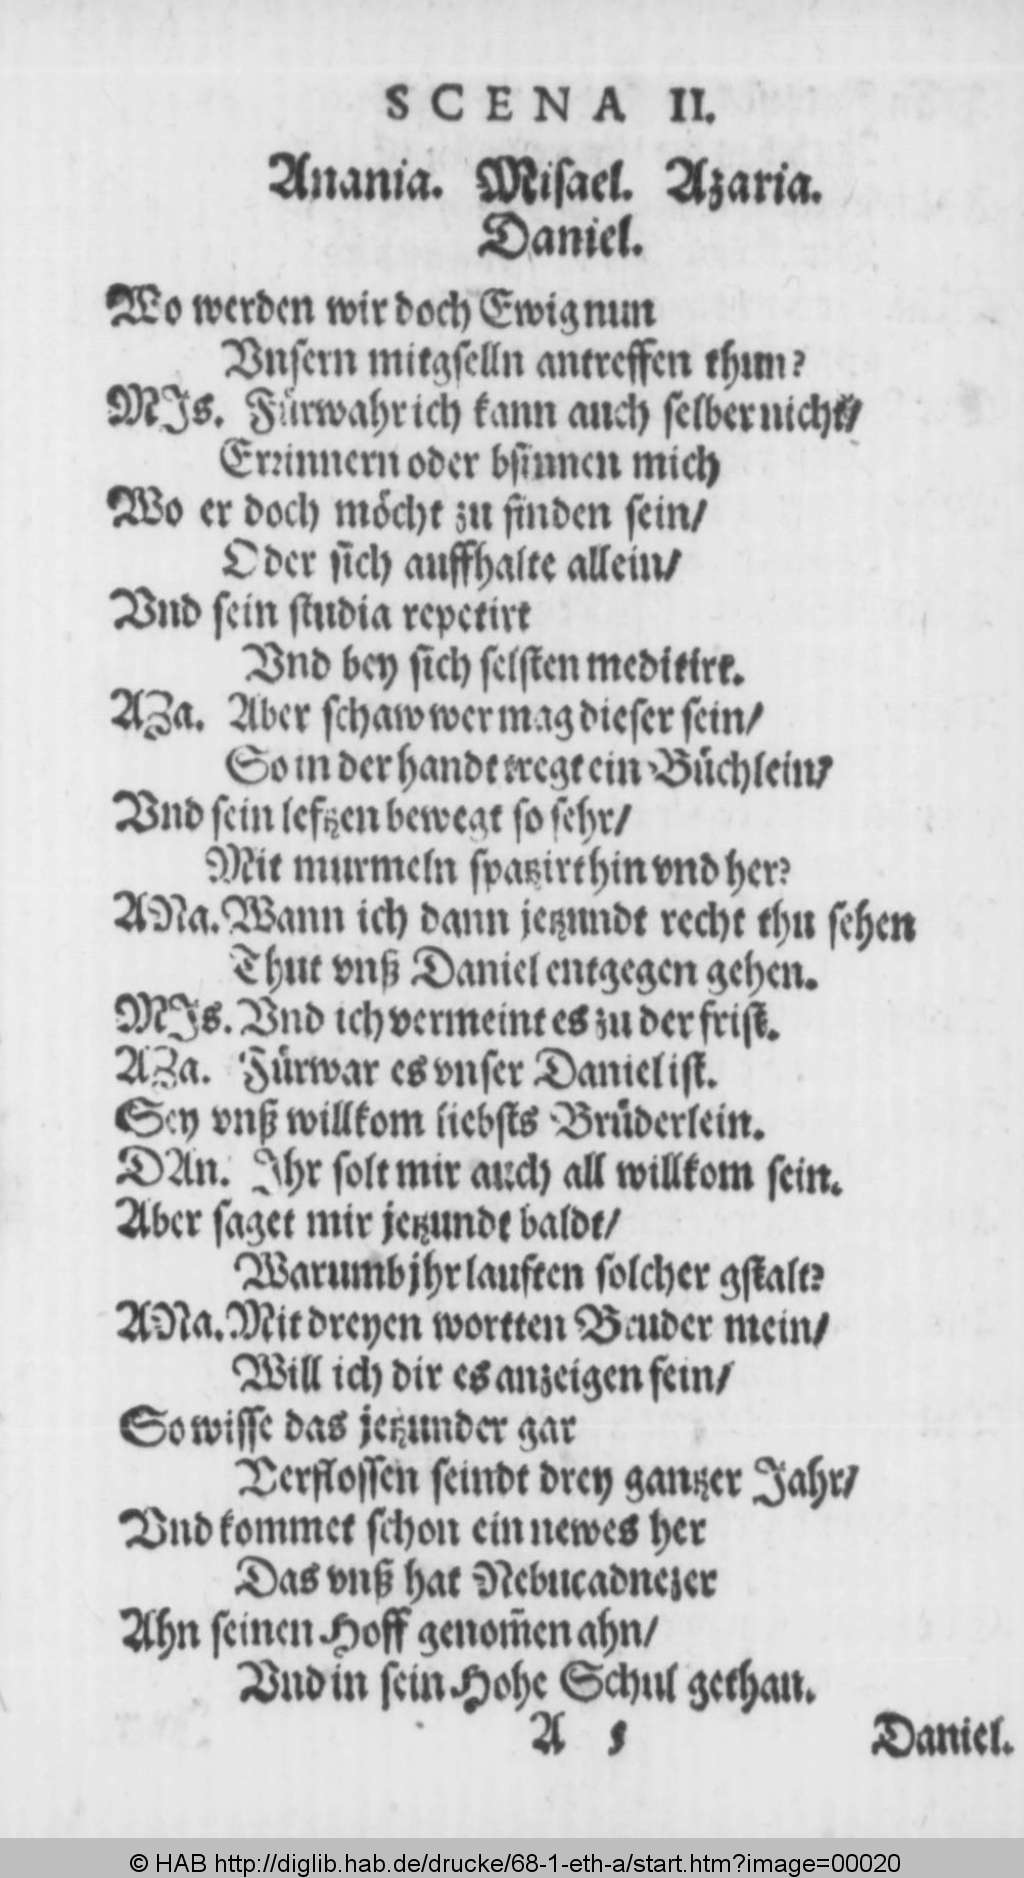 SCENA II.
Anania. Misael. Azaria.
Daniel.
Wo werden wir doch Ewig nun
Vnsern mitgselln antreffen thun?
MIs. Fürwahr ich kann auch selber nicht/
Errinnern oder bsinnen mich
Wo er doch möcht zu finden sein/
Oder sich auffhalte allein/
Vnd sein studia repetirt
Vnd bey sich selsten meditirt.
AZa. Aber schaw wer mag dieser sein/
So in der handt tregt ein Büchlein/
Vnd sein leftzen bewegt so sehr/
Mit murmeln spatzirt hin vnd her?
ANa. Wann ich dann jetzundt recht thu sehen
Thut vnß Daniel entgegen gehen.
MIs. Vnd ich vermeint es zu der frist.
AZa. Fürwar es vnser Daniel ist.
Sey vnß willkom liebsts Brüderlein.
DAn. Ihr solt mir auch all willkom sein.
Aber saget mir jetzundt baldt/
Warumb jhr lauften solcher gstalt?
ANa. Mit dreyen wortten Bruder mein/
Will ich dir es anzeigen fein/
So wisse das jetzunder gar
Verflossen seindt drey gantzer Jahr/
Vnd kommet schon ein newes her
Das vnß hat Nebucadnezer
Ahn seinen Hoff genom̃en ahn/
Vnd in sein Hohe Schul gethan.
A 5 Daniel.
© HAB http://diglib.hab.de/drucke/68-1-eth-a/start.htm?image=00020